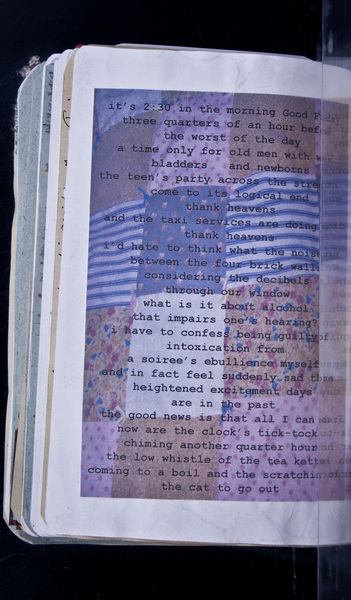 it's 2:30 in the morning Good
three quarters of an hour
the worst of the day
a time only for old men with
bladders and newborns
the teen's party across the
come to its logical end
thank heavens
and the taxi services are doing
thank heavens
i'd hate to think what the
between the four brick
considering the decibels
through our window
what is it about alcohol
that impairs one's hearing?
i have to confess being guilty of
intoxication from
a soiree's ebullience myself
and in fact feel suddenly sad
heightened excitement days
are in the past
the good news is that all I can
now are the clock's tick-tock
chiming another quarter hour
the low whistle of the tea
coming to a boil and the
the cat to go out